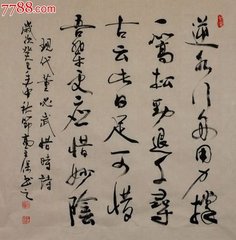 逆水行舟用力撑
一篙松劲退千寻
古云此日足可惜
吾辈更应惜妙阴
现代董必武惜时诗
岁次癸巳年中秋节
7788.com